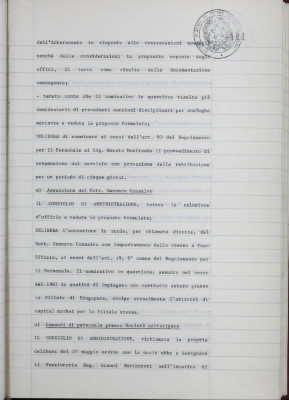 dell'interessato in risposta alle contestazioni
nonché delle considerazioni in proposito esposte dagli
uffici, il tutto come risulta dalla documentazione
consegnata;
- tenuto conto che il nominativo in questione risulta già
destinatario di precedenti sanzioni disciplinari per analoghe
mancanze e vedute le proposte formulate;
DELIBERA di comminare ai sensi dell'art. 93 del Regolamento
per il Personale al Sig. Renato il provvedimento di
sospensione dal servizio con privazione della retribuzione
per un periodo di cinque giorni.
Assunzione del Dott. Gennaro
IL CONSIGLIO DI AMMINISTRAZIONE, intesa la relazione
d'ufficio e vedute le proposte formulate;
DELIBERA l'assunzione in ruolo, per chiamata diretta, del
Dott. Gennaro con inquadramento dello stesso a Capo
Ufficio, ai sensi dell'art. 19, comma del Regolamento per
il Personale. Il nominativo in questione, assunto nel marzo
del 1981 in qualità di impiegato con contratto estero presso
la Filiale di Singapore, svolge attualmente l'attività di
capital market per la Filiale stessa.
Comandi di personale presso Società partecipate
IL CONSIGLIO DI AMMINISTRAZIONE, richiamata la propria
delibera del 27 maggio scorso con la quale ebbe a designare
il Funzionario Rag. Gianni nell'incarico di